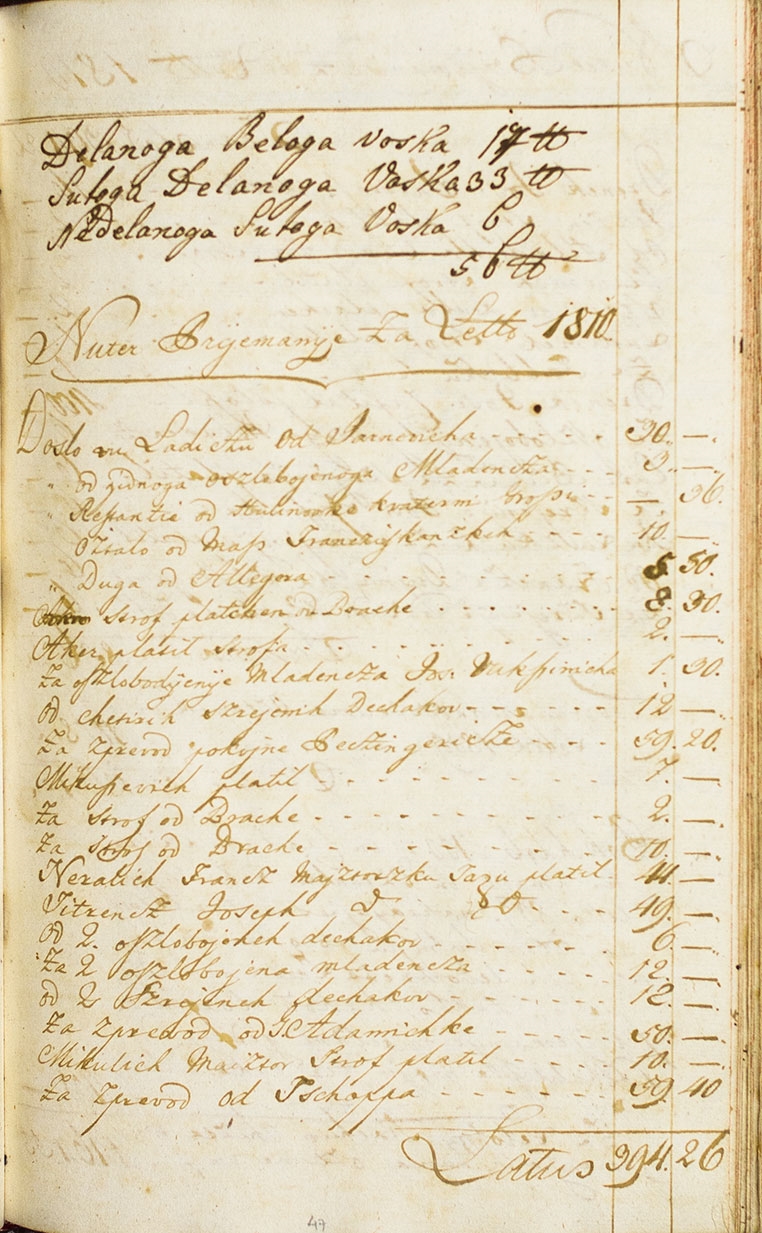 Delanoga Beloga voska 17 ℔
Sutoga Delanoga Voska 33 ℔
NeDelanoga Sutoga Voska 6
56 ℔
Nuter Prijemanije Za Letto 1810.
Doslo vu Ladiczu od Jarnevicha - - - - 30. —.
" od jednoga oszlobojenoga Mladencza - - - 3. —.
" od - - —. 36.
Ostalo od Mass Francziskanzkeh - - - 10. —.
" Duga od Allegora - - - - - - - 5. 50.
Strof platchen od Drache - - - - - - 8. 30.
Aker platil strofa - - - - - - - 2. —.
Za oszlobodjenije Mladencza Jos. 1. 30.
od chetirih szrejemih Dechakov - - - - - 12 —.
Za zprevod pokojne - - - - 59. 20.
platil - - - - - - - 7. —.
Za strof od Drache - - - - - - - - 2. —.
Za strof od Drache - - - - - - - - 10. —.
Neralich Francz Majztorzku Taxu platil - 44. —
Titrencz Joseph D D. - - - 49. —.
od 2. oszlobojeneh dechakov - - - - - - 6. —.
Za 2 oszlobojena mladencza - - - - - 12. —.
od 2 Szrejeneh dechakov - - - - - - 12. —.
Za Zprevod od S. Adamichke - - - - - 50. —.
Mikulich Maiztor Strof platil - - - - - 10. —.
Za zprevod od Tschoppa - - - - - - 59. 40
Latus 394. 26
47